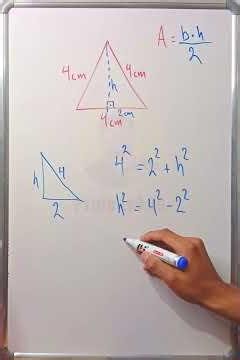 A = b·h / 2
4cm
4cm
h
2cm
4cm
h
4
2
4² = 2² + h²
h² = 4² - 2²